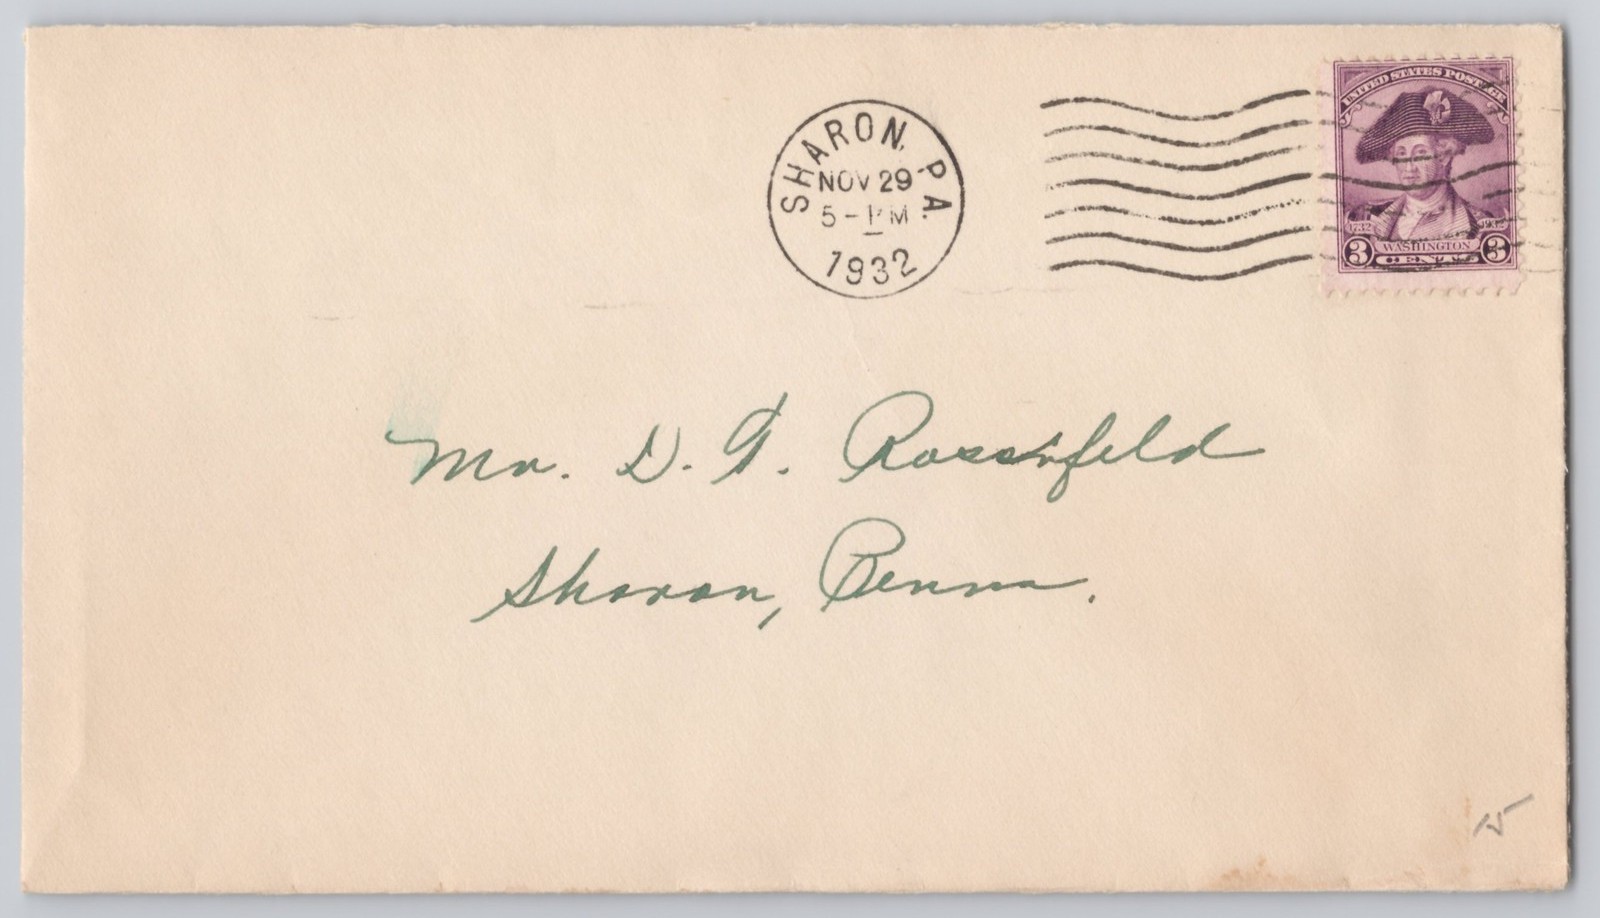 SHARON, PA.
NOV 29
5-PM
1932
UNITED STATES POSTAGE
1732 1932
3 WASHINGTON 3
CENTS
Mr. D. G. Rosenfeld
Sharon, Penna.
15